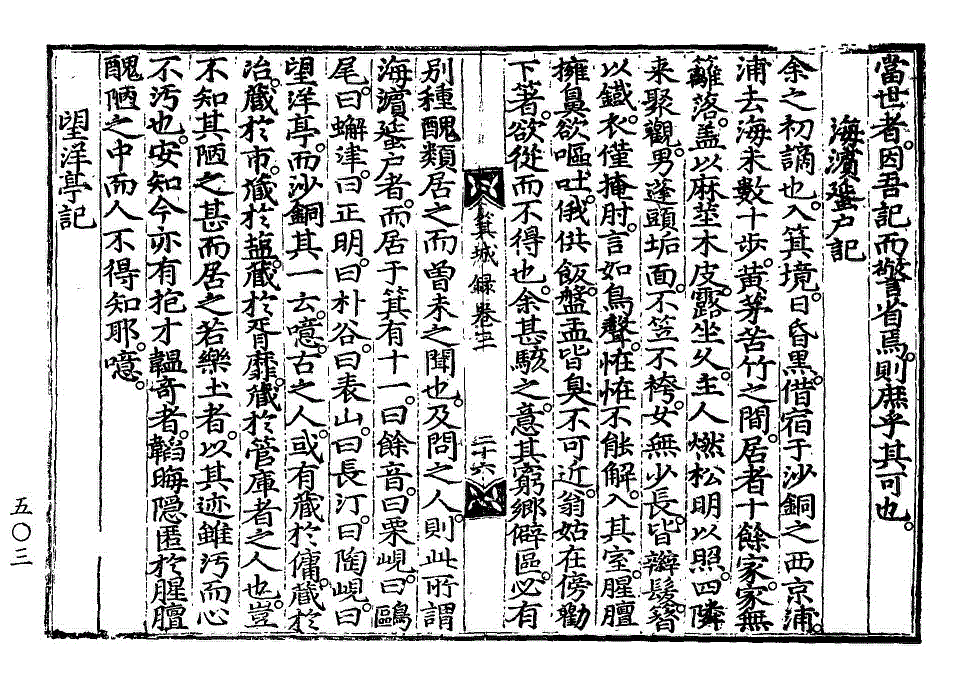 當世者。因吾記而警省焉。則庶乎其可也。
海濵蜑户記
余之初謫也。入箕境。日昏黒。借宿于沙銅之西京浦。
浦去海未數十步。黄茅苦竹之間。居者十餘家。家無
籬落。盖以麻莖木皮。露坐久。主人燃松明以照。四隣
来聚觀。男蓬頭垢面。不笠不袴。女無少長。皆辮髮。簪
以鐵。衣僅掩肘。言如鳥聲。恠恠不能解。入其室。腥膻
擁鼻。欲嘔吐。俄供飯。盤盂皆臭。不可近。翁姑在傍勸
下著。欲從而不得也。余甚駭之。意其窮鄉僻區。必有
箕城録卷三
二十六
别種醜類居之。而曽未之聞也。及問之人。則此所謂
海濵蜑户者。而居于箕有十一。曰餘音。曰栗峴。曰鷗
尾。曰蠏津。曰正明。曰朴谷。曰表山。曰長汀。曰陶峴。曰
望洋亭。而沙銅其一云。噫。古之人。或有蔵於傭。蔵於
冶。蔵於市。蔵於鹽。蔵於胥靡。蔵於管庫者之人也。豈
不知其陋之甚。而居之若樂土者。以其迹雖汚而心
不汚也。安知今亦有抱才韞奇者。韜晦隠匿於腥膻
醜陋之中而人不得知耶。噫。
望洋亭記
五〇三